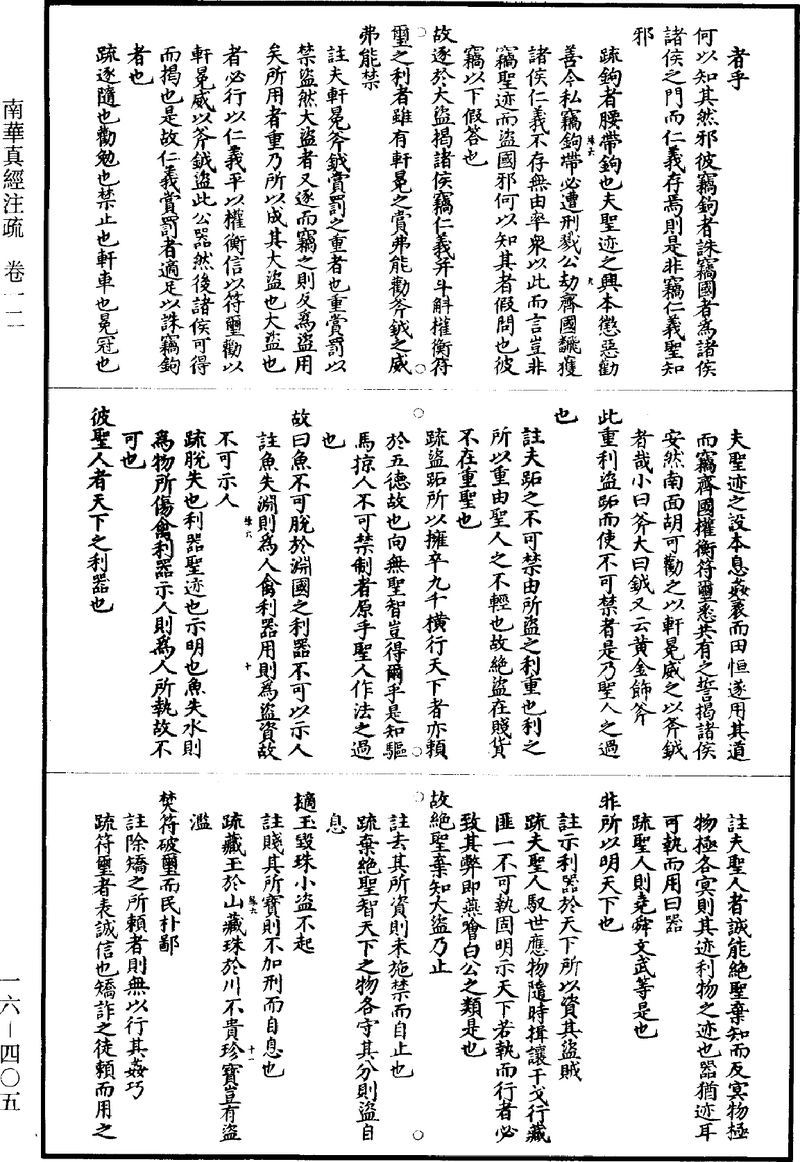 者乎
何以知其然邪彼竊鉤者誅竊國者為諸侯
諸侯之門而仁義存焉則是非竊仁義聖知
邪
疏鉤者腰帶鉤也夫聖迹之興本懲惡勸
善今私竊鉤帶必遭刑戮公劫齊國飜獲
諸侯仁義不存無由率衆以此而言豈非
竊聖迹而盜國邪何以知其者假問也彼
竊以下假答也
故逐於大盜揭諸侯竊仁義并斗斛權衡符
璽之利者雖有軒冕之賞弗能勸斧鉞之威
弗能禁
註夫軒冕斧鉞賞罰之重者也重賞罰以
禁盜然大盜者又逐而竊之則反為盜用
矣所用者重乃所以成其大盜也大盜也
者必行以仁義平以權衡信以符璽勸以
軒冕威以斧鉞盜此公器然後諸侯可得
而揭也是故仁義賞罰者適足以誅竊鉤
者也
疏逐隨也勸勉也禁止也軒車也冕冠也
夫聖迹之設本息姦衺而田恒遂用其道
而竊齊國權衡符璽悉共有之誓揭諸侯
安然南面胡可勸之以軒冕威之以斧鉞
者哉小曰斧大曰鉞又云黃金飾斧
此重利盜跖而使不可禁者是乃聖人之過
也
註夫跖之不可禁由所盜之利重也利之
所以重由聖人之不輕也故絶盜在賤貨
不在重聖也
疏盜跖所以擁卒九千橫行天下者亦賴
於五德故也向無聖智豈得爾乎是知驅
馬掠人不可禁制者原乎聖人作法之過
也
故曰魚不可脫於淵國之利器不可以示人
註魚失淵則為人禽利器用則為盜資故
不可示人
疏脫失也利器聖迹也示明也魚失水則
為物所傷禽利器示人則為人所執故不
可也
彼聖人者天下之利器也
註夫聖人者誠能絶聖棄知而反冥物極
物極各冥則其迹利物之迹也器猶迹耳
可執而用曰器
疏聖人則堯舜文武等是也
非所以明天下也
註示利器於天下所以資其盜賊
疏夫聖人馭世應物隨時揖讓干戈行藏
匪一不可執固明示天下若執而行者必
致其弊即燕噲白公之類是也
故絶聖棄知大盜乃止
註去其所資則未施禁而自止也
疏棄絶聖智天下之物各守其分則盜自
息
擿玉毀珠小盜不起
註賤其所寶則不加刑而自息也
疏藏玉於山藏珠於川不貴珍寶豈有盜
濫
焚符破璽而民朴鄙
註除矯之所賴者則無以行其姦巧
疏符璽者表誠信也矯詐之徒賴而用之
南華真經注疏　卷一一
一六－四〇五